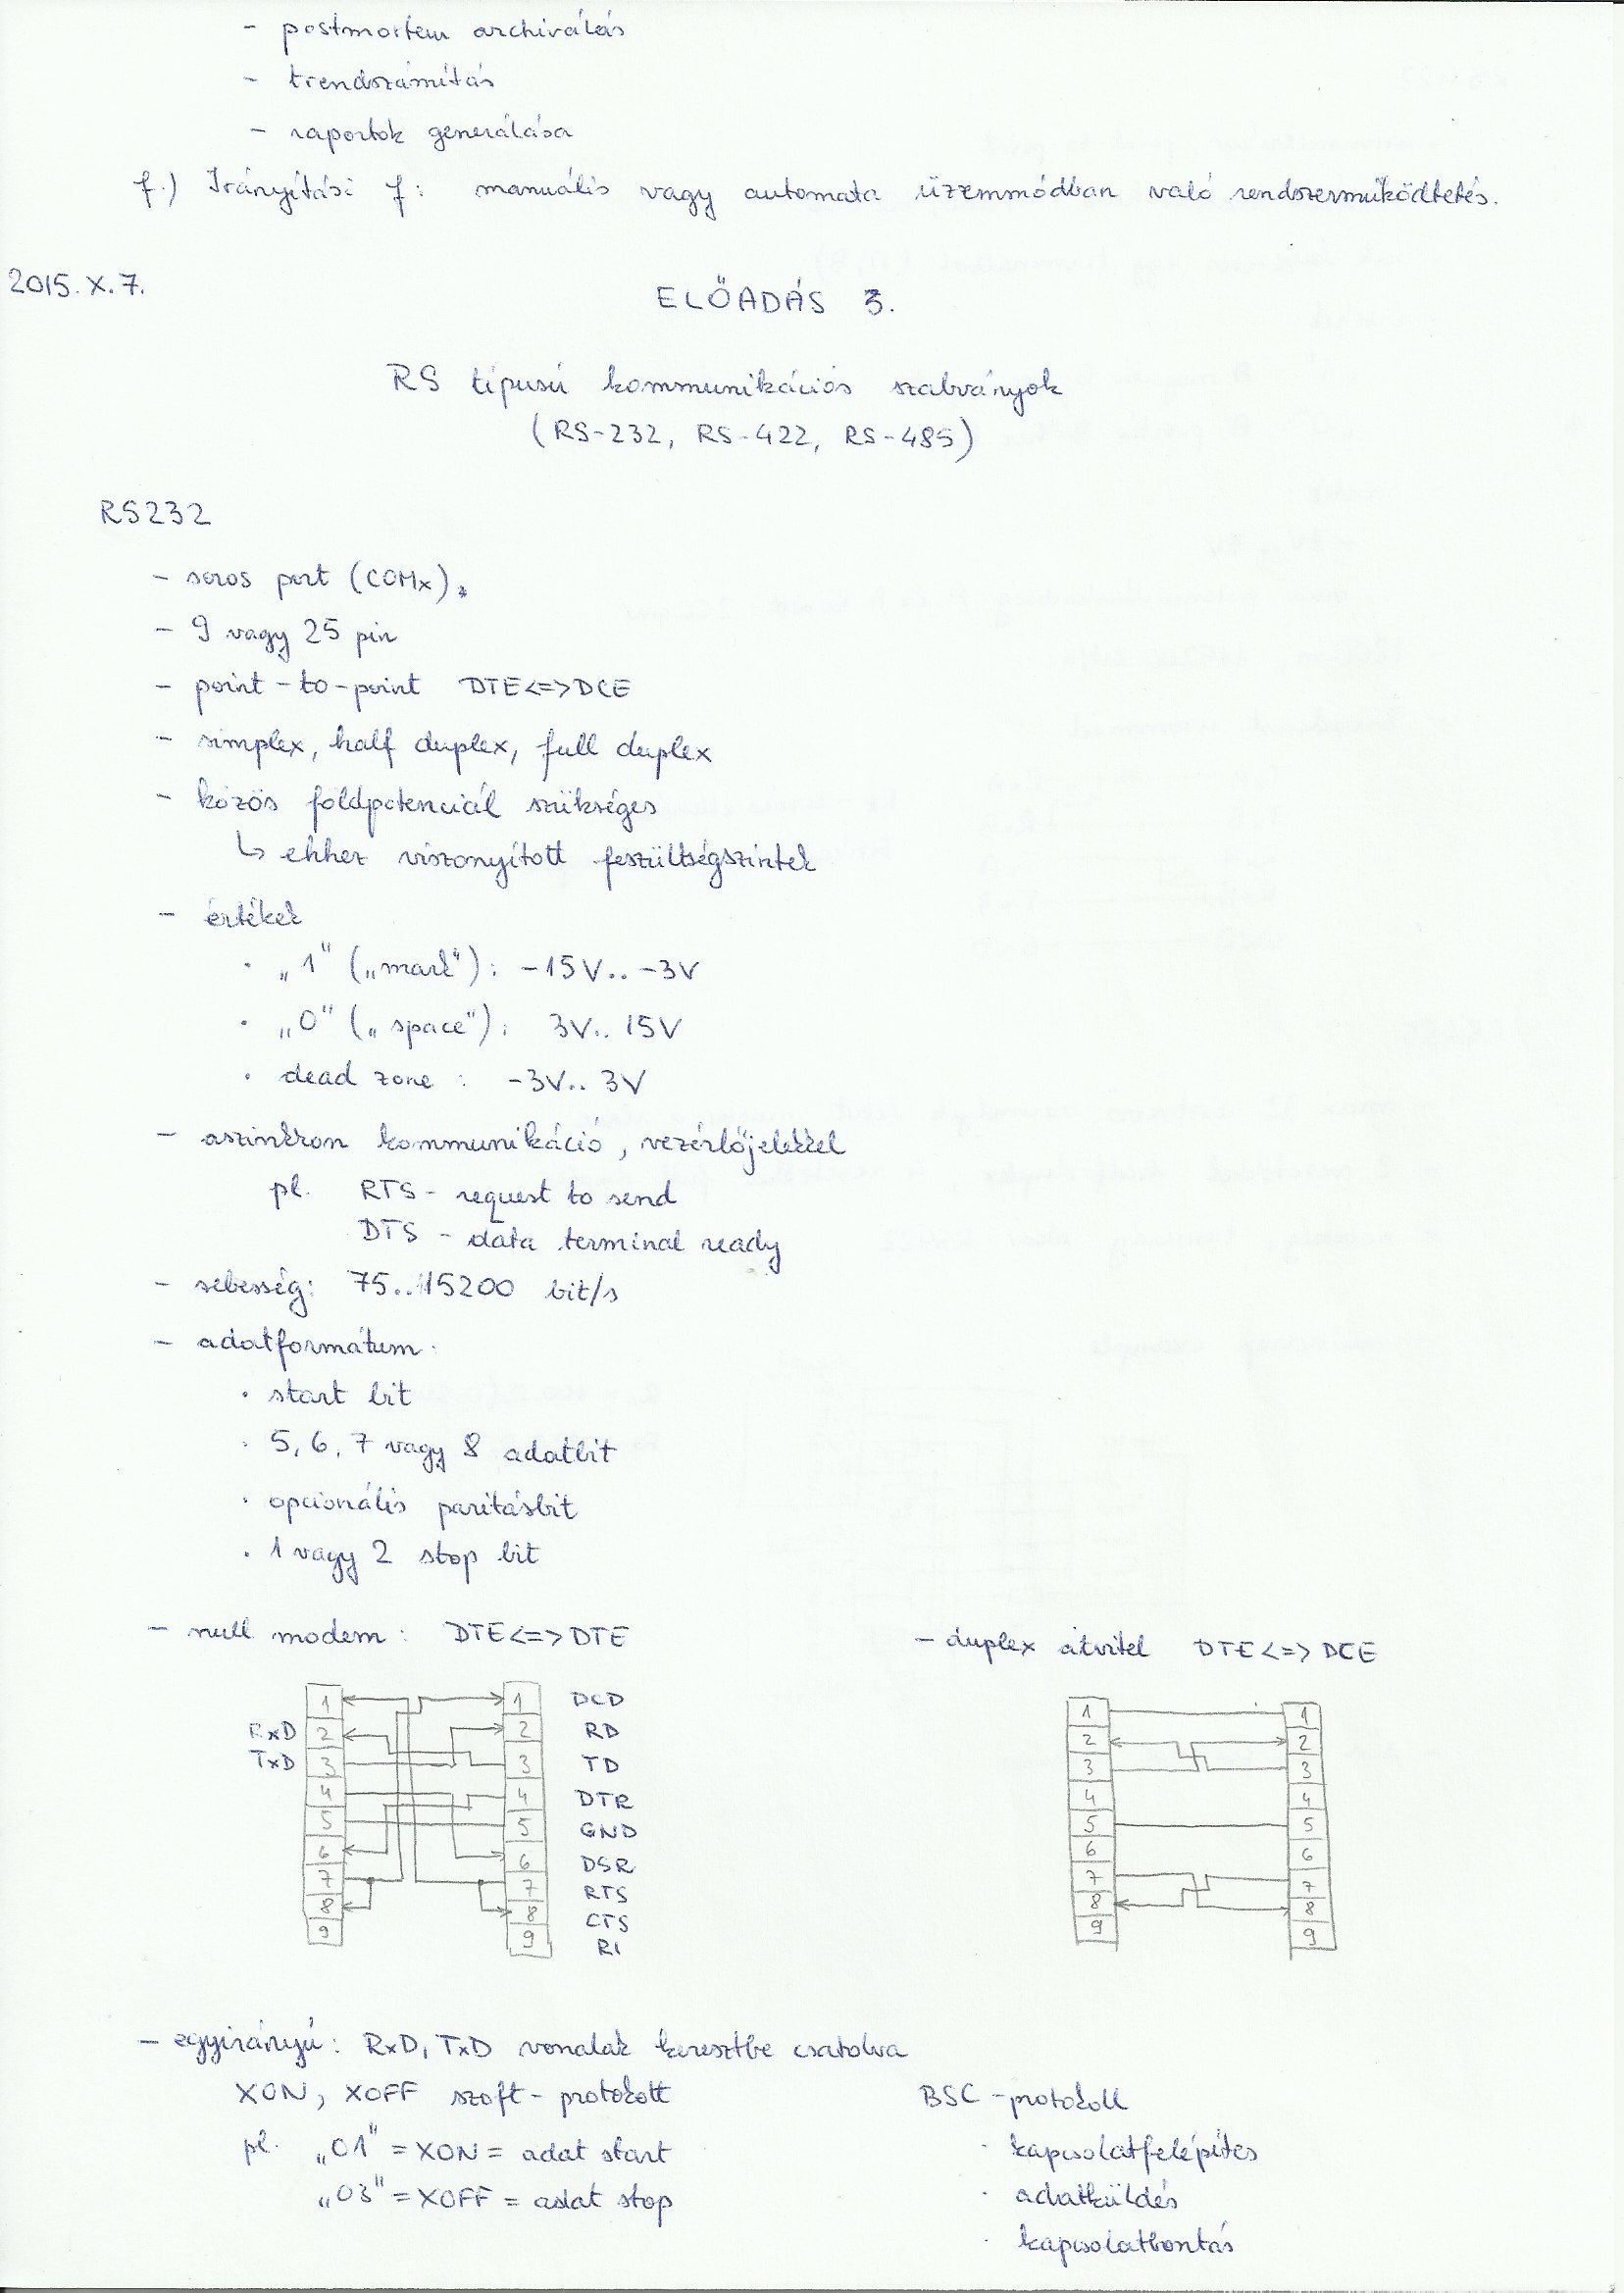 - postmortem archiválás
- trendszámítás
- raportok generálása
f.) Irányítási f: manuális vagy automata üzemmódban való rendszerműködtetés.
2015. X. 7.
ELŐADÁS 3.
RS típusú kommunikációs szabványok
(RS-232, RS-422, RS-485)
RS232
- soros port (COMx).
- 9 vagy 25 pin
- point-to-point DTE<=>DCE
- simplex, half duplex, full duplex
- közös földpotenciál szükséges
↳ ehhez viszonyított feszültségszintek
- értékek
· „1" („mark"): -15V.. -3V
· „0" („space"): 3V.. 15V
· dead zone: -3V.. 3V
- aszinkron kommunikáció, vezérlőjelekkel
pl. RTS - request to send
DTS - data terminal ready
- sebesség: 75..115200 bit/s
- adatformátum:
· start bit
· 5, 6, 7 vagy 8 adatbit
· opcionális paritásbit
· 1 vagy 2 stop bit
- null modem: DTE<=>DTE
- duplex átvitel DTE<=>DCE
1 1 DCD
RxD 2 2 RD
TxD 3 3 TD
4 4 DTR
5 5 GND
6 6 DSR
7 7 RTS
8 8 CTS
9 9 RI
1 1
2 2
3 3
4 4
5 5
6 6
7 7
8 8
9 9
- egyirányú: RxD, TxD vonalak keresztbe csatolva
XON, XOFF szoft-protokoll
pl. „01" = XON = adat start
„03" = XOFF = adat stop
BSC-protokoll
· kapcsolatfelépítés
· adatküldés
· kapcsolatbontás